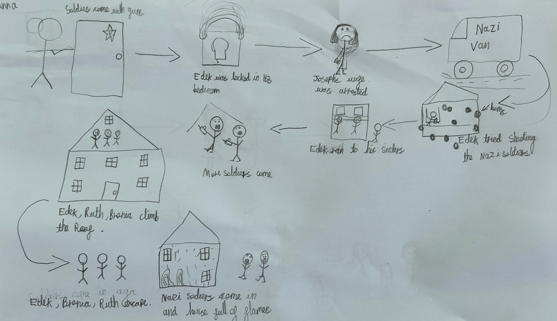 nna
Soldiers come with guns
Edek was locked in his
bedroom
Josephs wife
was arrested
Nazi
Van
Edek tried shooting
the Nazi soldiers
Edek went to his sisters
More soldiers come
Edek, Ruth, Bronia climb
the Roof.
Edek, Bronia, Ruth escape.
Nazi soliers come in
and house full of flames